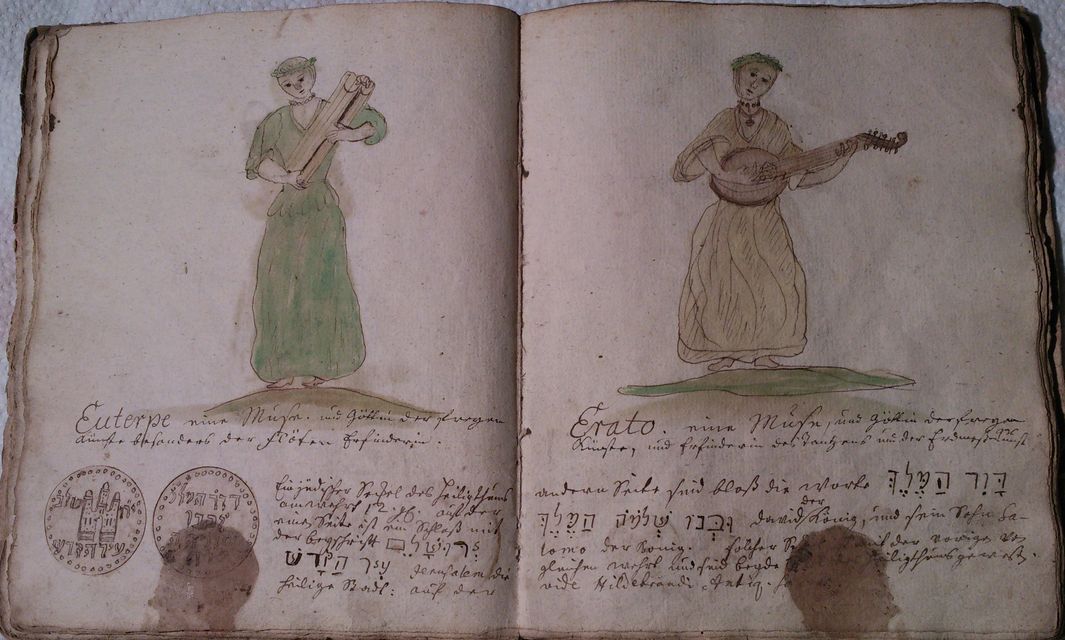 Euterpe eine Muse. und Göttin der freyen
Künste besonders der flöten Erfinderin.
דוד המלך
Ein jüdischer Seckel des Heiligthums
am wehrt 12 auf der
eine Seite ist ein Schloß mit
der beyschrift
עיר הקדש Jerusalem, die
heilige Stadt: auf der
Erato. eine Muse, und Göttin der freyen
Künste, und Erfinderin des Tantzens und der Erdmeß-Kunst
andern Seite sind bloß die worte דָּוִד הַמֶּלֶךְ
וּבְנוֹ שְׁלֹמֹה הַמֶּלֶךְ david der König, und sein Sohn Sa-
lomo der König. solcher der vorige von
gleichen wehrt und sind beyde Heiligthums gewest.
vide Hildebrandi Antiq.